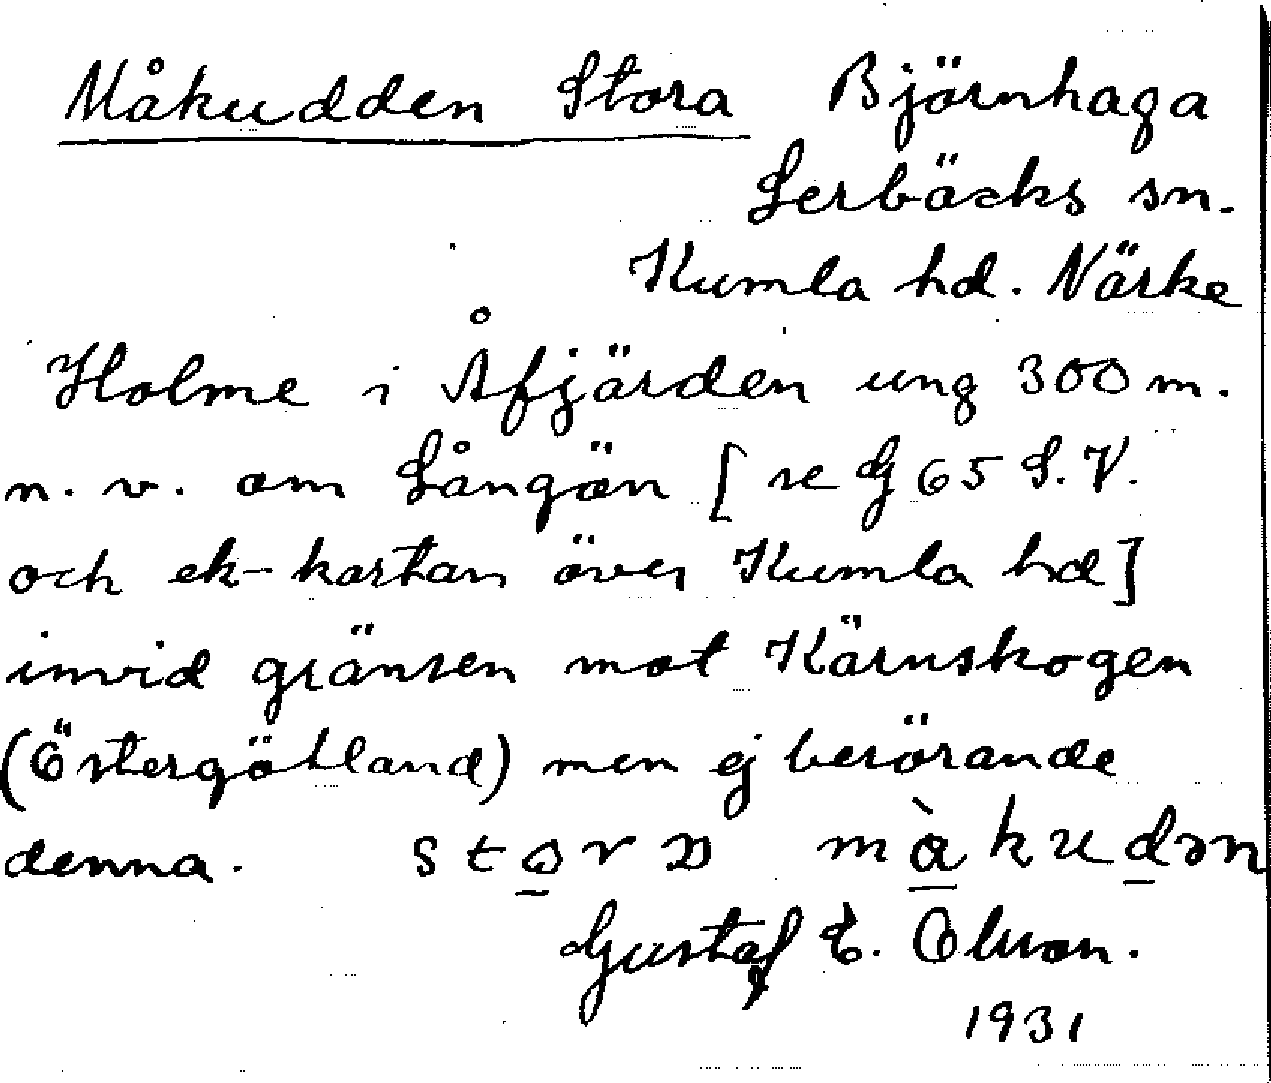 Måkudden Stora Björnhaga
Lerbäcks sn.
Kumla hd. Närke
Holme i Åfjärden ung 300 m.
n. v. om Långön [se G 65 S.V.
och ek-kartan över Kumla hd]
invid gränsen mot Kärnskogen
(Östergötland) men ej berörande
denna.
Gustaf E. Olson.
1931